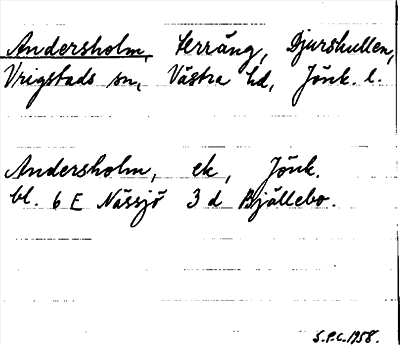 Andersholm, terräng, Djurshullen,
Vrigstads sn, Västra hd, Jönk. l.
Andersholm, ek, Jönk.
bl. 6 E Nässjö 3 d Bjällebo.
S.P.C. 1958.